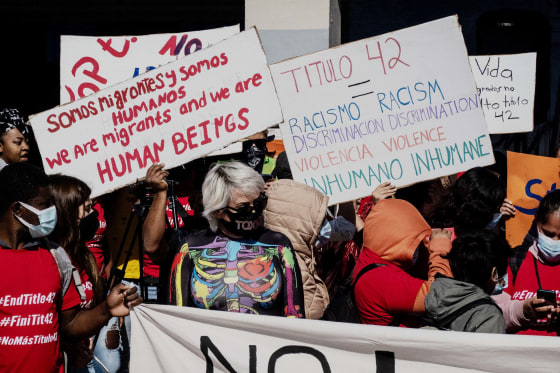 NO
SOMOS migRantes Y SOMOS
HUMANOS
We are migRants and we are
HUMAN BEINGS
TITULO 42
=
RACISMO RACISM
DISCRIMINACION DISCRIMINATION
VIOLENCIA VIOLENCE
INHUMANO INHUMANE
Vida
no
titulo
42
#EndTitle4
#FiniTit42
#NoMásTítulo4
NO